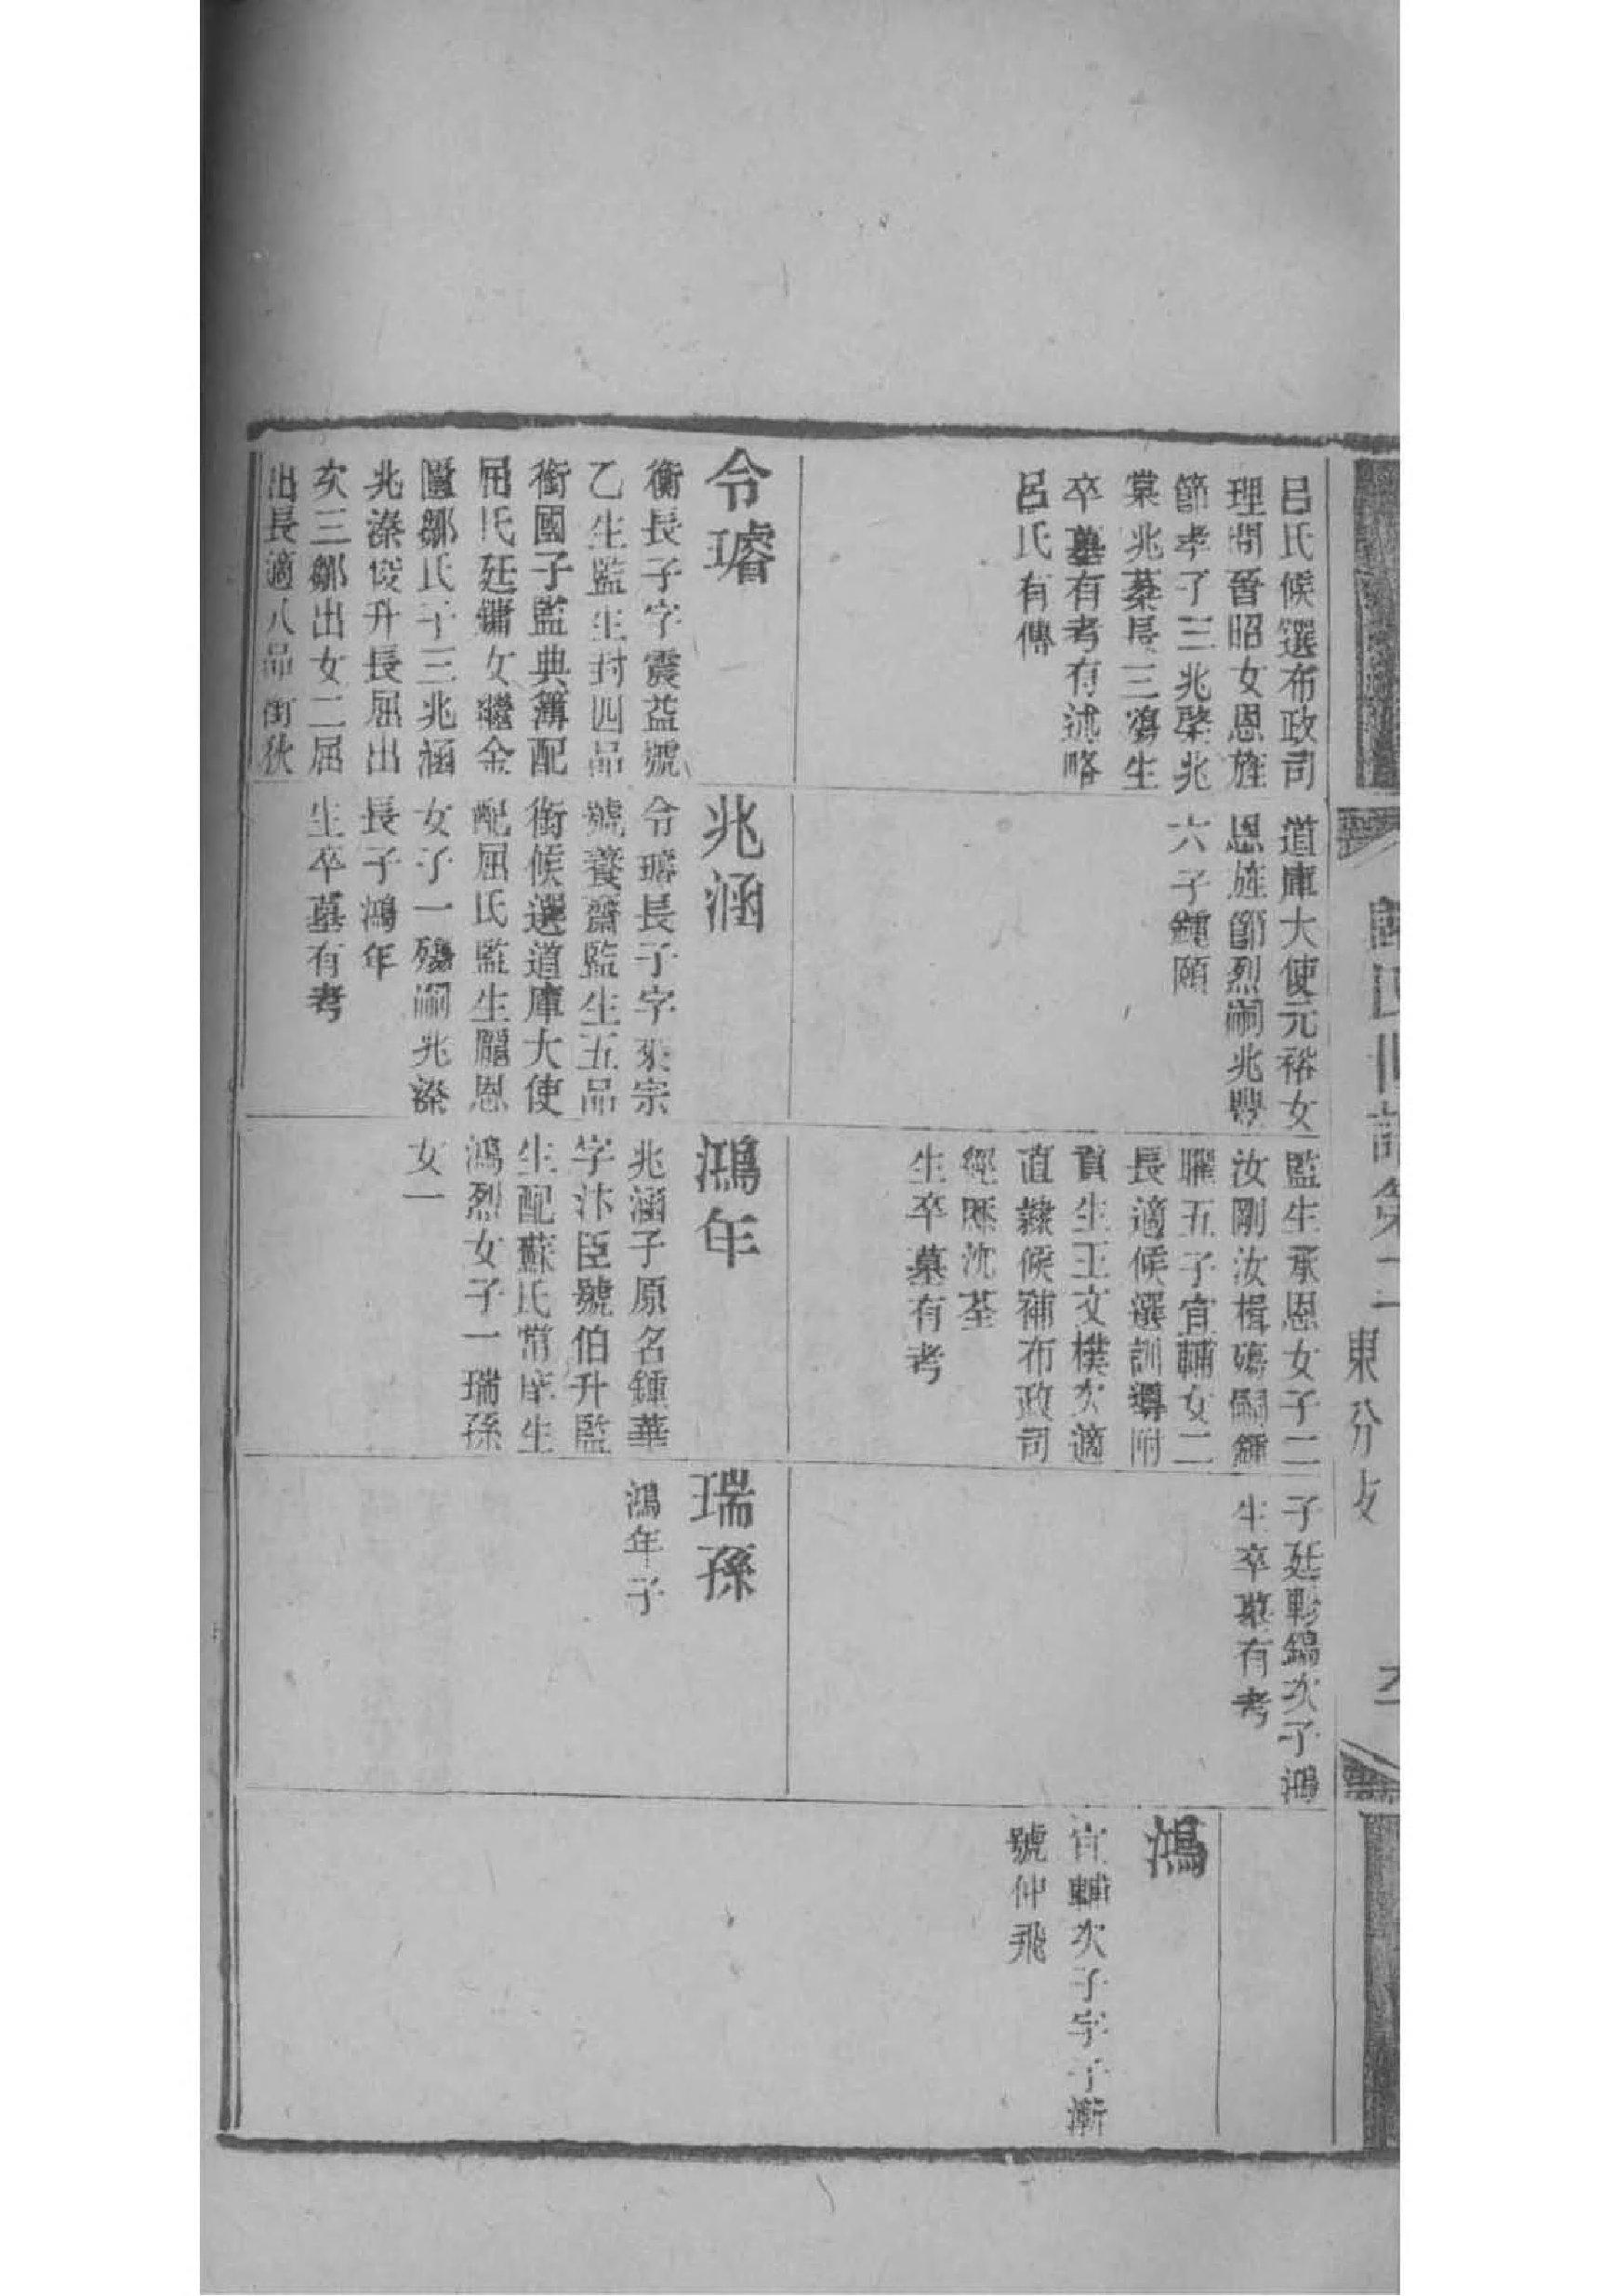 東分支
呂氏候選布政司
理問晉昭女恩旌
節孝子三兆棨兆
棠兆蓁長三殤生
卒墓有考有述略
呂氏有傳
道庫大使元裕女
恩旌節烈嗣兆豐
六子鍾頤
監生承恩女子二
汝剛汝楫殤嗣鍾
驊五子宜輔女二
長適候選訓導附
貢生王文樸次適
直隸候補布政司
經歷沈荃
生卒墓有考
子廷彰錫次子鴻
生卒墓有考
鴻
宜輔次子字子漸
號仲飛
令璿
衡長子字震益號
乙生監生封四品
銜國子監典簿配
屈氏廷鏞女繼金
匱鄒氏子三兆涵
兆濚俊升長屈出
次三鄒出女二屈
出長適八品銜狄
兆涵
令璿長子字來宗
號養齋監生五品
銜候選道庫大使
配屈氏監生鵬恩
女子一殤嗣兆濚
長子鴻年
生卒墓有考
鴻年
兆涵子原名鍾華
字汴臣號伯升監
生配蘇氏常庠生
鴻烈女子一瑞孫
女一
瑞孫
鴻年子